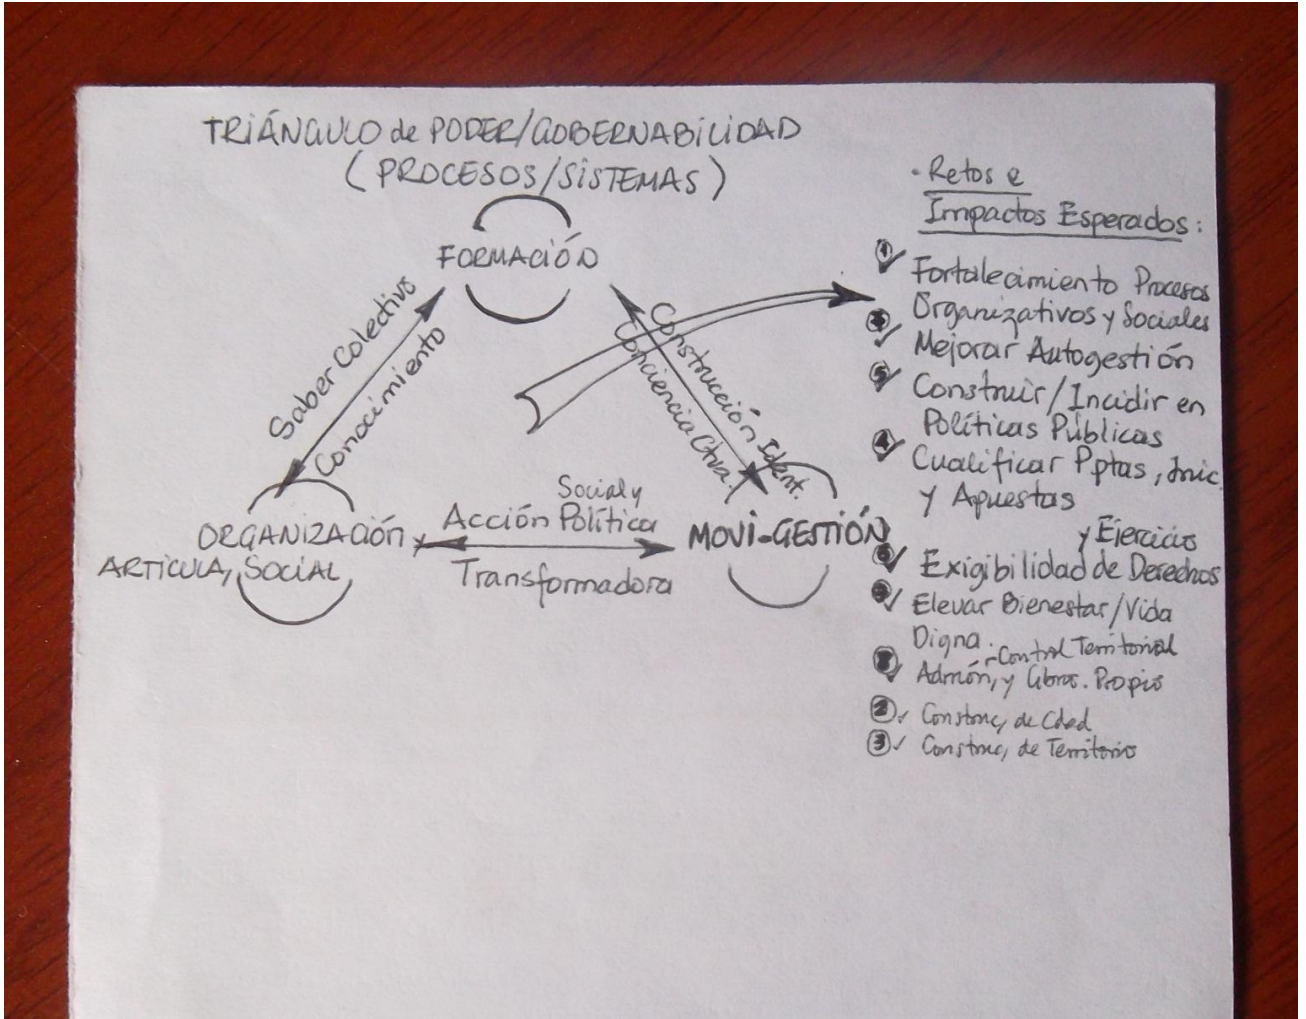 TRIÁNGULO de PODER/GOBERNABILIDAD
(PROCESOS/SISTEMAS)
FORMACIÓN
Saber Colectivo
Conocimiento
Construcción Ident.
Conciencia Ctva.
ORGANIZACIÓN y
ARTICULA, SOCIAL
Social y
Acción Política
Transformadora
MOVI-GESTIÓN
· Retos e
Impactos Esperados:
1 ✓ Fortalecimiento Procesos
Organizativos y Sociales
✓ Mejorar Autogestión
5 ✓ Construir/Incidir en
Políticas Públicas
4 ✓ Cualificar Pptas, Inic.
y Apuestas
y Ejercicio
6 ✓ Exigibilidad de Derechos
✓ Elevar Bienestar/Vida
Digna.
- Control Territorial
✓ Admón, y Gbno. Propio
2 ✓ Construc, de Cdad
3 ✓ Construc, de Territorio